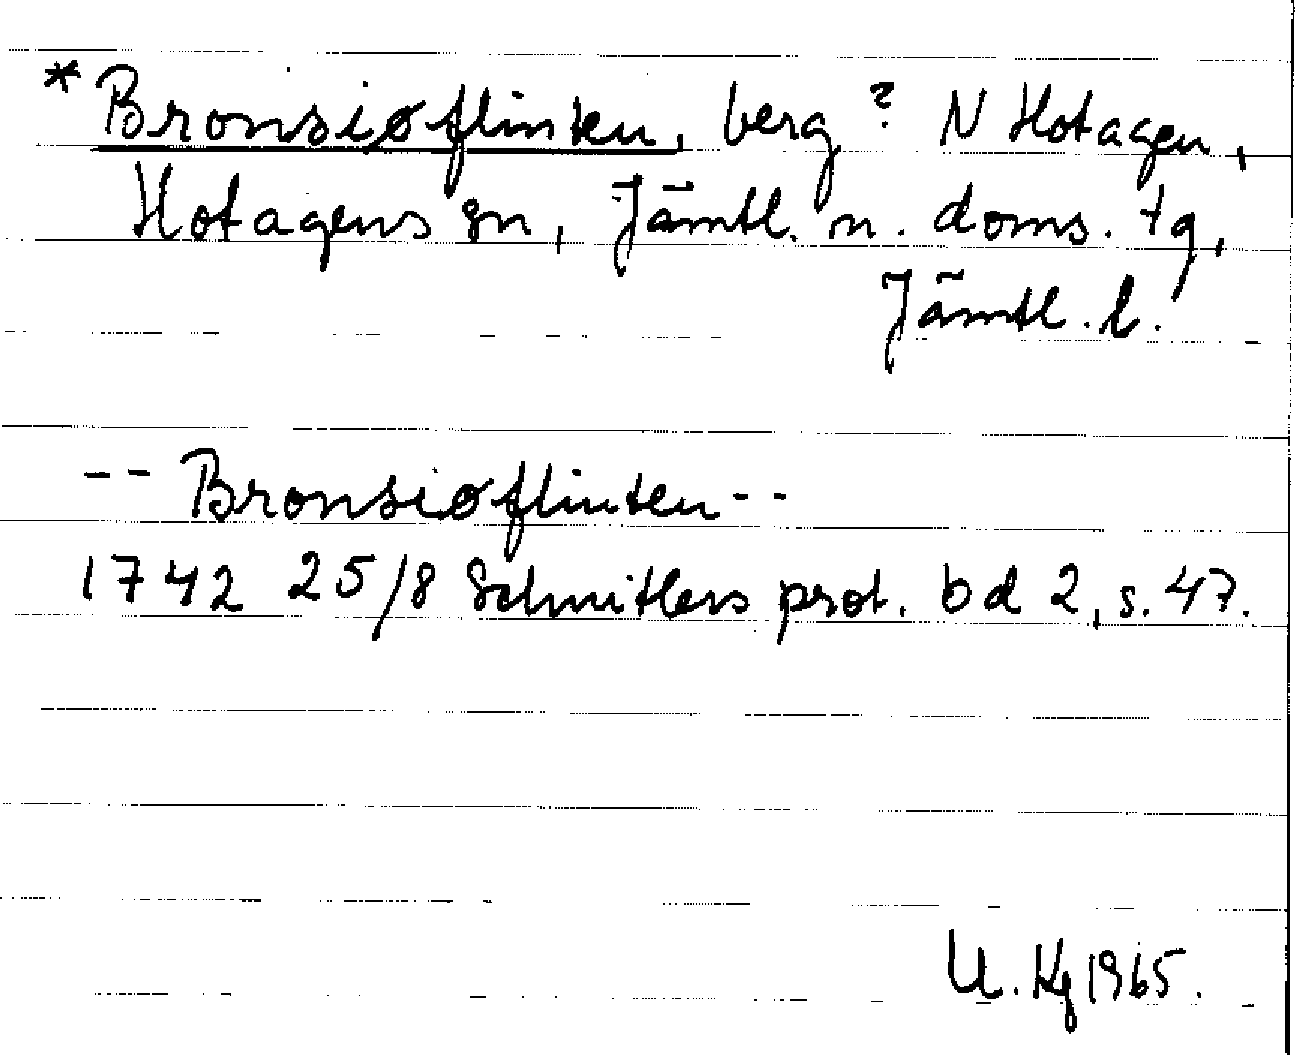 * Bronsiøflinten, berg? N Hotagen,
Hotagens sn, Jämtl. n. doms. tg,
Jämtl. l.
-- Bronsiøflinten --
1742 25/8 Schnitlers prot. bd 2, s. 47.
U. Kg 1965.